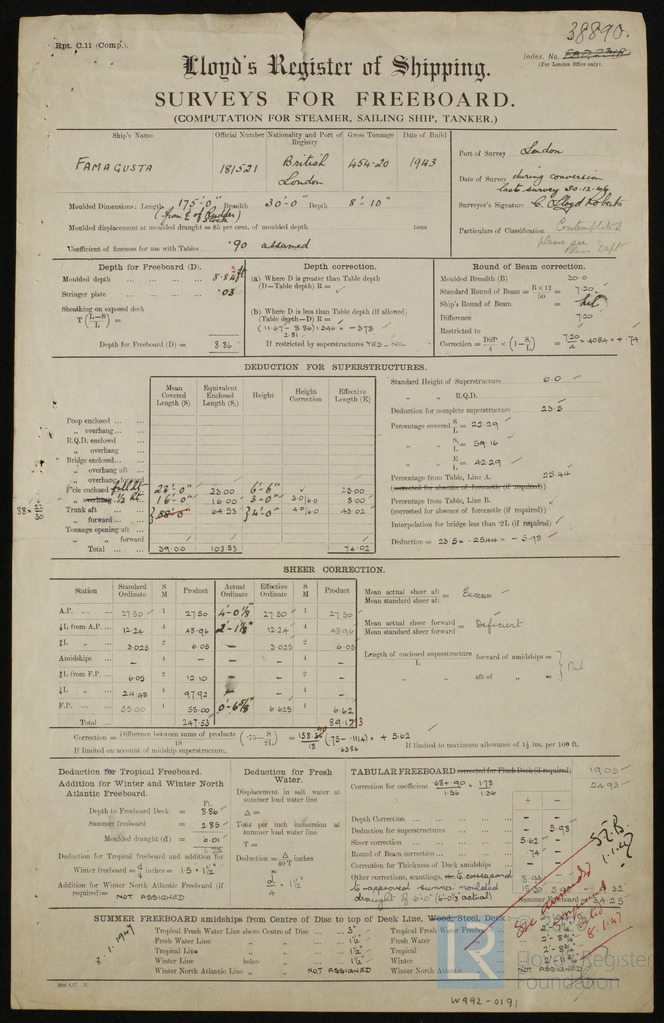 38890.
Rpt. C.11 (Comp.).
Index. No.
(For London Office only).
Lloyd's Register of Shipping.
SURVEYS FOR FREEBOARD.
(COMPUTATION FOR STEAMER, SAILING SHIP, TANKER.)
Ship's Name Official Number Nationality and Port of Registry Gross Tonnage Date of Build
FAMAGUSTA 181521 British London 454.20 1943
Port of Survey London
Date of Survey during conversion last survey 30-12-46
Surveyor's Signature C. Lloyd Roberts
Particulars of Classification Contemplated
Moulded Dimensions: Length 175'-0" Breadth 30'-0" Depth 8'-10"
Moulded displacement at moulded draught = 85 per cent. of moulded depth tons
Coefficient of fineness for use with Tables .90 assumed
Depth for Freeboard (D).
Moulded depth
Stringer plate .03
Sheathing on exposed deck
T (L-S/L) =
Depth for Freeboard (D) = 8.86
Depth correction.
(a) Where D is greater than Table depth
(D-Table depth) R =
(b) Where D is less than Table depth (if allowed)
(Table depth-D) R =
If restricted by superstructures
Round of Beam correction.
Moulded Breadth (B) 30.0
Standard Round of Beam = B×12/50 = 7.20
Ship's Round of Beam = Nil
Difference 7.20
Restricted to
Correction = Diff/4 × (1-S/L) = 7.20/4 × .4084 = + .74
DEDUCTION FOR SUPERSTRUCTURES.
Mean Covered Length (S) Equivalent Enclosed Length (S₁) Height Height Correction Effective Length (E)
Poop enclosed
" overhang
R.Q.D. enclosed
" overhang
Bridge enclosed
" overhang aft
" overhang forward
Fcle enclosed 23'-0" 23.00 6'-6" 23.00
16'-0" 16.00 3'-0" 3.0/6.0 8.00
Trunk aft 88'-0" 64.53 4'-0" 4.0/6.0 43.02
" forward
Tonnage opening aft
" " forward
Total 39.00 103.53 74.02
Standard Height of Superstructure 6.0
" " R.Q.D.
Deduction for complete superstructure 23.5
Percentage covered S/L = 22.29
" " S₁/L = 59.16
" " E/L = 42.29
Percentage from Table, Line A. 25.44
(corrected for absence of forecastle (if required))
Percentage from Table, Line B.
(corrected for absence of forecastle (if required))
Interpolation for bridge less than .2L (if required)
Deduction = 23.5 × .2544 = - 5.98
SHEER CORRECTION.
Station Standard Ordinate S M Product Actual Ordinate Effective Ordinate S M Product
A.P. 27.50 1 27.50 4'-0⅛" 27.50 1 27.50
⅙L from A.P. 12.24 4 48.96 2'-1⅞" 12.24 4 48.96
⅓L " 3.025 2 6.05 - 3.025 2 6.05
Amidships - 4 - - - 4 -
⅓L from F.P. 6.05 2 12.10 - - 2 -
⅙L " 24.48 4 97.92 - - 4 -
F.P. 55.00 1 55.00 0'-6⅝" 6.625 1 6.62
Total 247.53 89.13
Mean actual sheer aft / Mean standard sheer aft = Excess
Mean actual sheer forward / Mean standard sheer forward = Deficient
Length of enclosed superstructure forward of amidships =
L " aft of " = Nil
Correction = Difference between sums of products/18 (.75-S/2L) = 158.40/18 (.75-.1114) = + 5.62
If limited on account of midship superstructure. If limited to maximum allowance of 1½ ins. per 100 ft.
Deduction for Tropical Freeboard.
Addition for Winter and Winter North Atlantic Freeboard.
Ft.
Depth to Freeboard Deck = 8.86
Summer freeboard = 2.85
Moulded draught (d) = 6.01
Deduction for Tropical freeboard and addition for
Winter freeboard = d/4 inches = 1.5 = 1½"
Addition for Winter North Atlantic Freeboard (if required) = NOT ASSIGNED
Deduction for Fresh Water.
Displacement in salt water at summer load water line
Δ =
Tons per inch immersion at summer load water line
T =
Deduction = Δ/40T inches
d/4 = 1½"
TABULAR FREEBOARD corrected for Flush Deck (if required) 19.05
Correction for coefficient .68+.90/1.36 = 1.58/1.36
+ -
Depth Correction
Deduction for superstructures 5.98
Sheer correction 5.62
Round of Beam correction .74
Correction for Thickness of Deck amidships
Other corrections, scantlings, to correspond
to approved summer moulded
draught of 6'-0" (6-0⅛ actual)
Summer Freeboard = 34.25
S.L.B
1.1.47
8.1.47
SUMMER FREEBOARD amidships from Centre of Disc to top of Deck Line, Wood, Steel, Deck:
3.1.1947
Tropical Fresh Water Line above Centre of Disc 3"
Fresh Water Line " " 1½"
Tropical Line " " 1½"
Winter Line below " " 1½"
Winter North Atlantic Line " " NOT ASSIGNED
Tropical Fresh Water Freeboard
Fresh Water "
Tropical "
Winter "
Winter North Atlantic " NOT ASSIGNED
LR
Lloyd's Register
Foundation
W992-0191